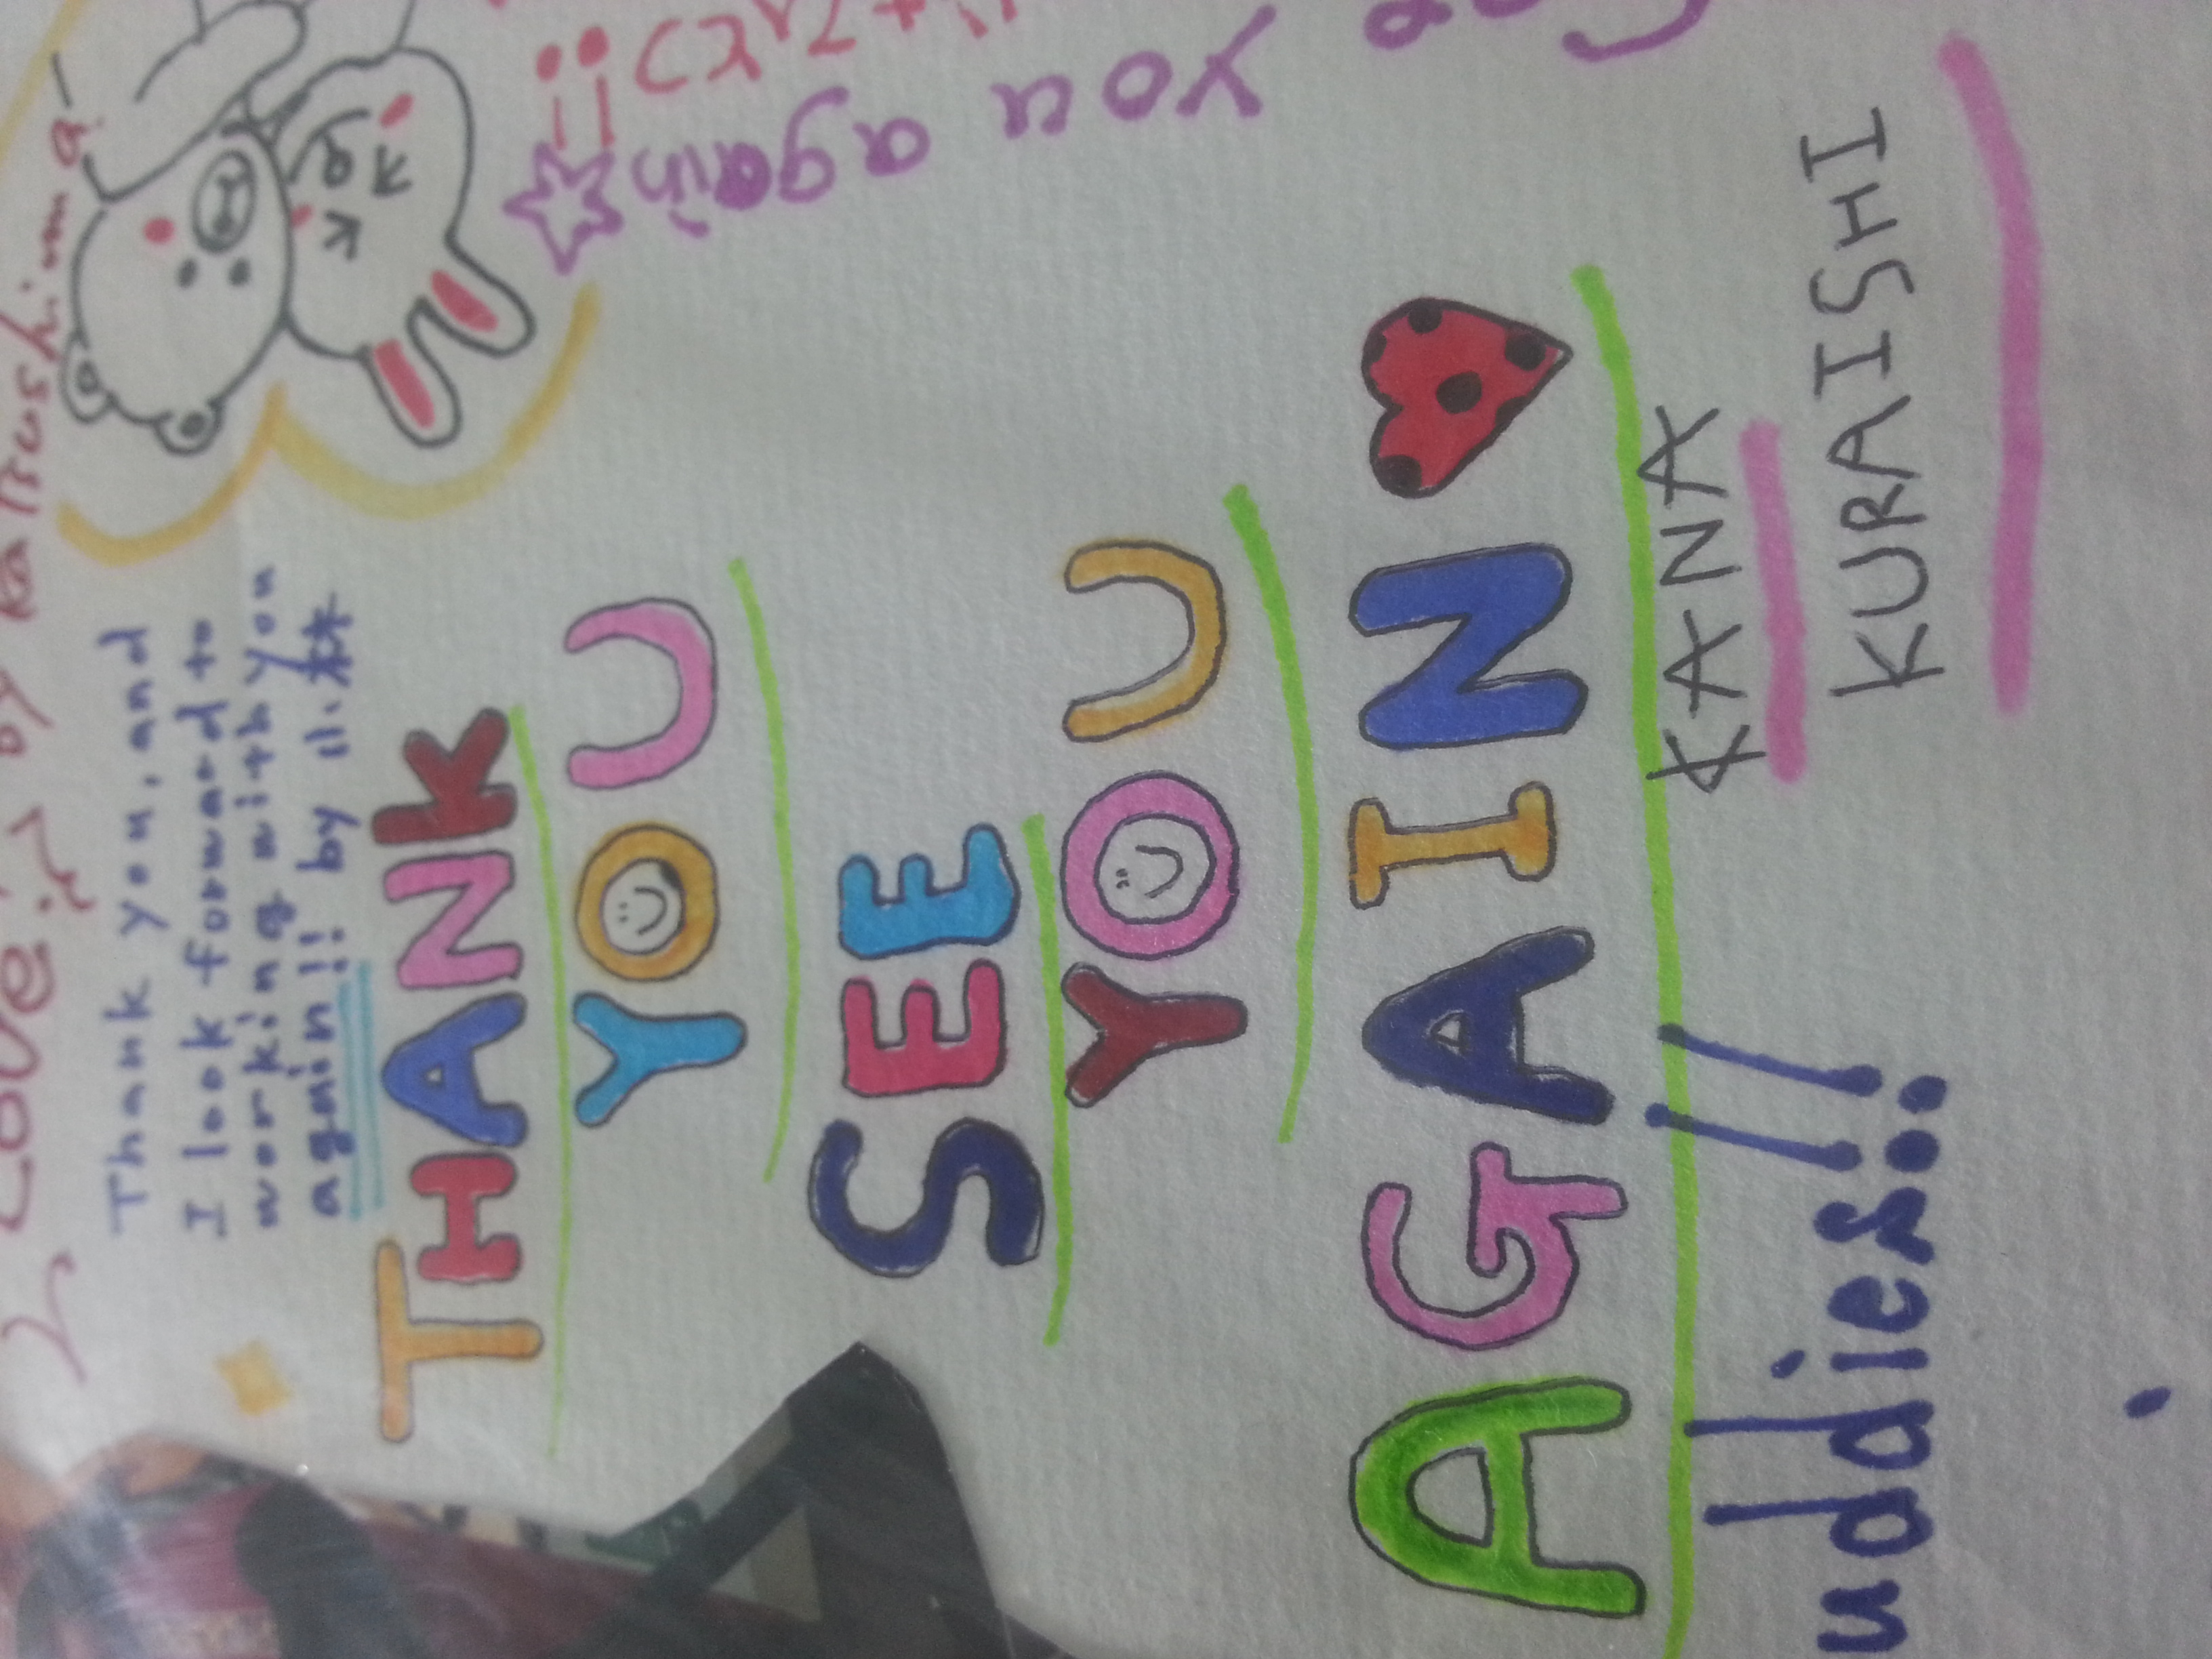 Love! by Katsushima
Thank you, and
I look forward to
working with you
again!! by 小林
THANK
YOU
SEE
YOU
AGAIN
KANA
KURAISHI
uddies!!
you again